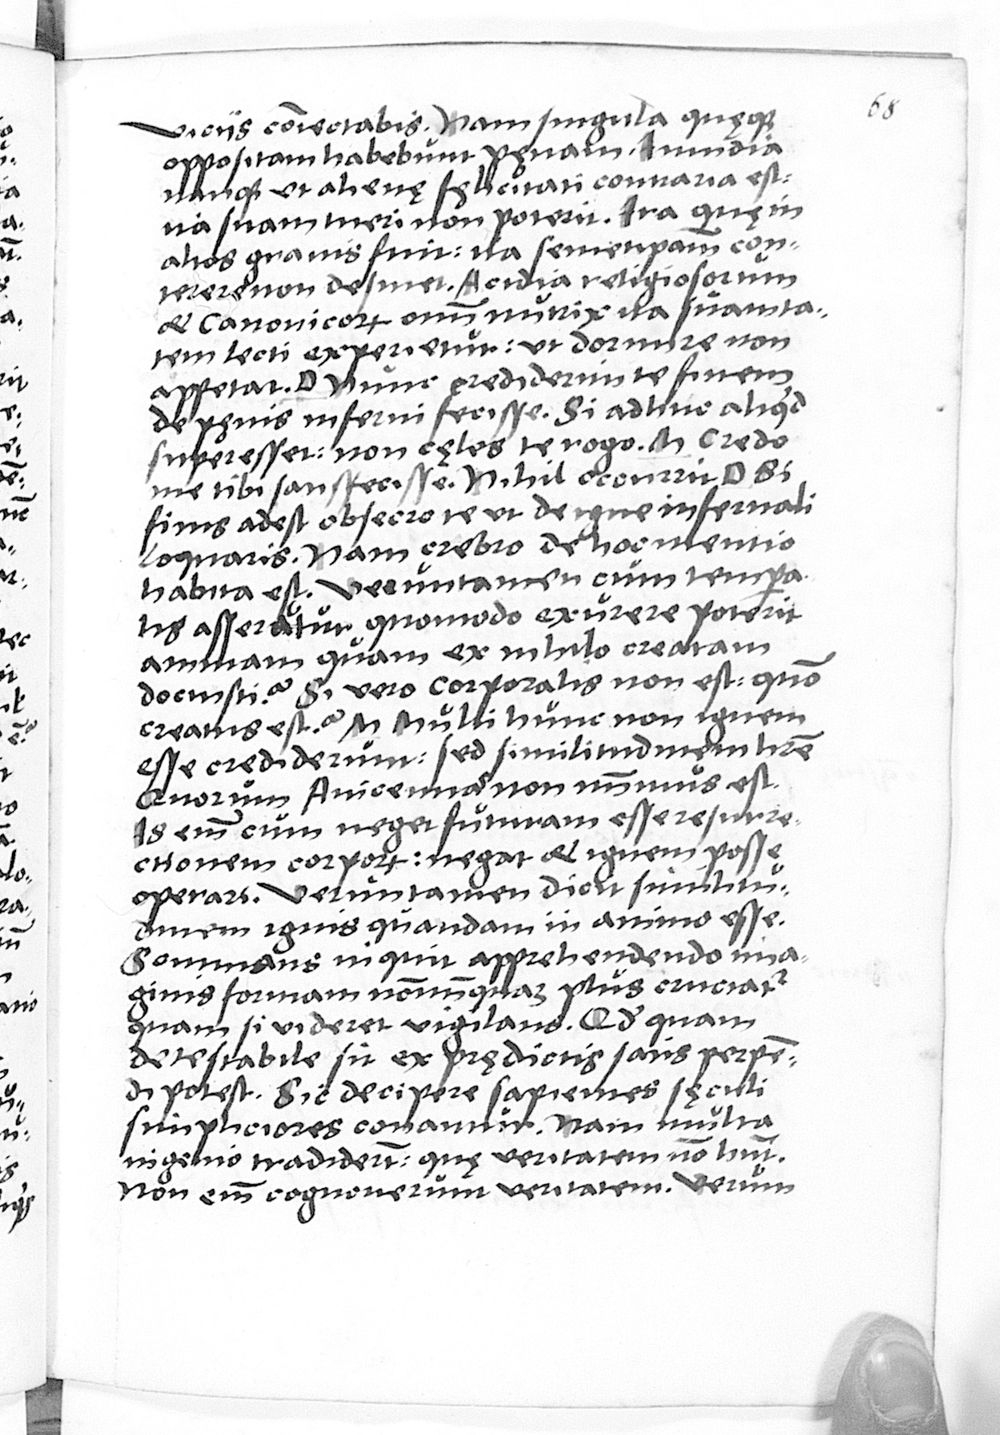 68
viciis cōiectabis. Nam singula quęq3
oppositam habebunt pęnam. Inuidia
nanq3 ut alienę fęlicitati contraria est:
ita suam tueri non poterit. Ira quę in
alios grauis fuit: ita semetipsam con-
terere non desinet. Acidia religiosorum
& Canonicorꝝ omnī nutrix ita suauita-
tem lecti experietur: ut dormire non
appetat. D Nunc crediderim te finem
de pęnis inferni fecisse. Si adhuc aliqd
superesset: non cęles te rogo. M Credo
me tibi satisfecisse. Nihil occurrit D Si
finis adest obsecro te ut de igne infernali
loquaris. Nam crebro de hoc mentio
habita est. Veruntamen cum tempora-
lis asseratur quomodo exurere poterit
animam quam ex nihilo creatam
docuisti? Si vero corporalis non est: quō
creatus est? M Multi hunc non ignem
esse crediderunt: sed similitudinem hrē
Quorum Auicenna non minimus est.
Is enī cum neget futuram esse resurre-
ctionem corporꝝ: negat & ignem posse
operari. Veruntamen dicit similitu-
dinem ignis quandam in animo esse.
Somnians inquit apprehendendo ima-
ginis formam nonnūquam plus cruciat
quam si videret vigilans. Qd quam
detestabile sit ex prędictis satis perpē-
di potest. Sic decipere sapientes sęculi
simpliciores conantur. Nam multa
ingenio tradiderūt: quę veritatem nō hnt.
Non enī cognouerunt veritatem. Verum